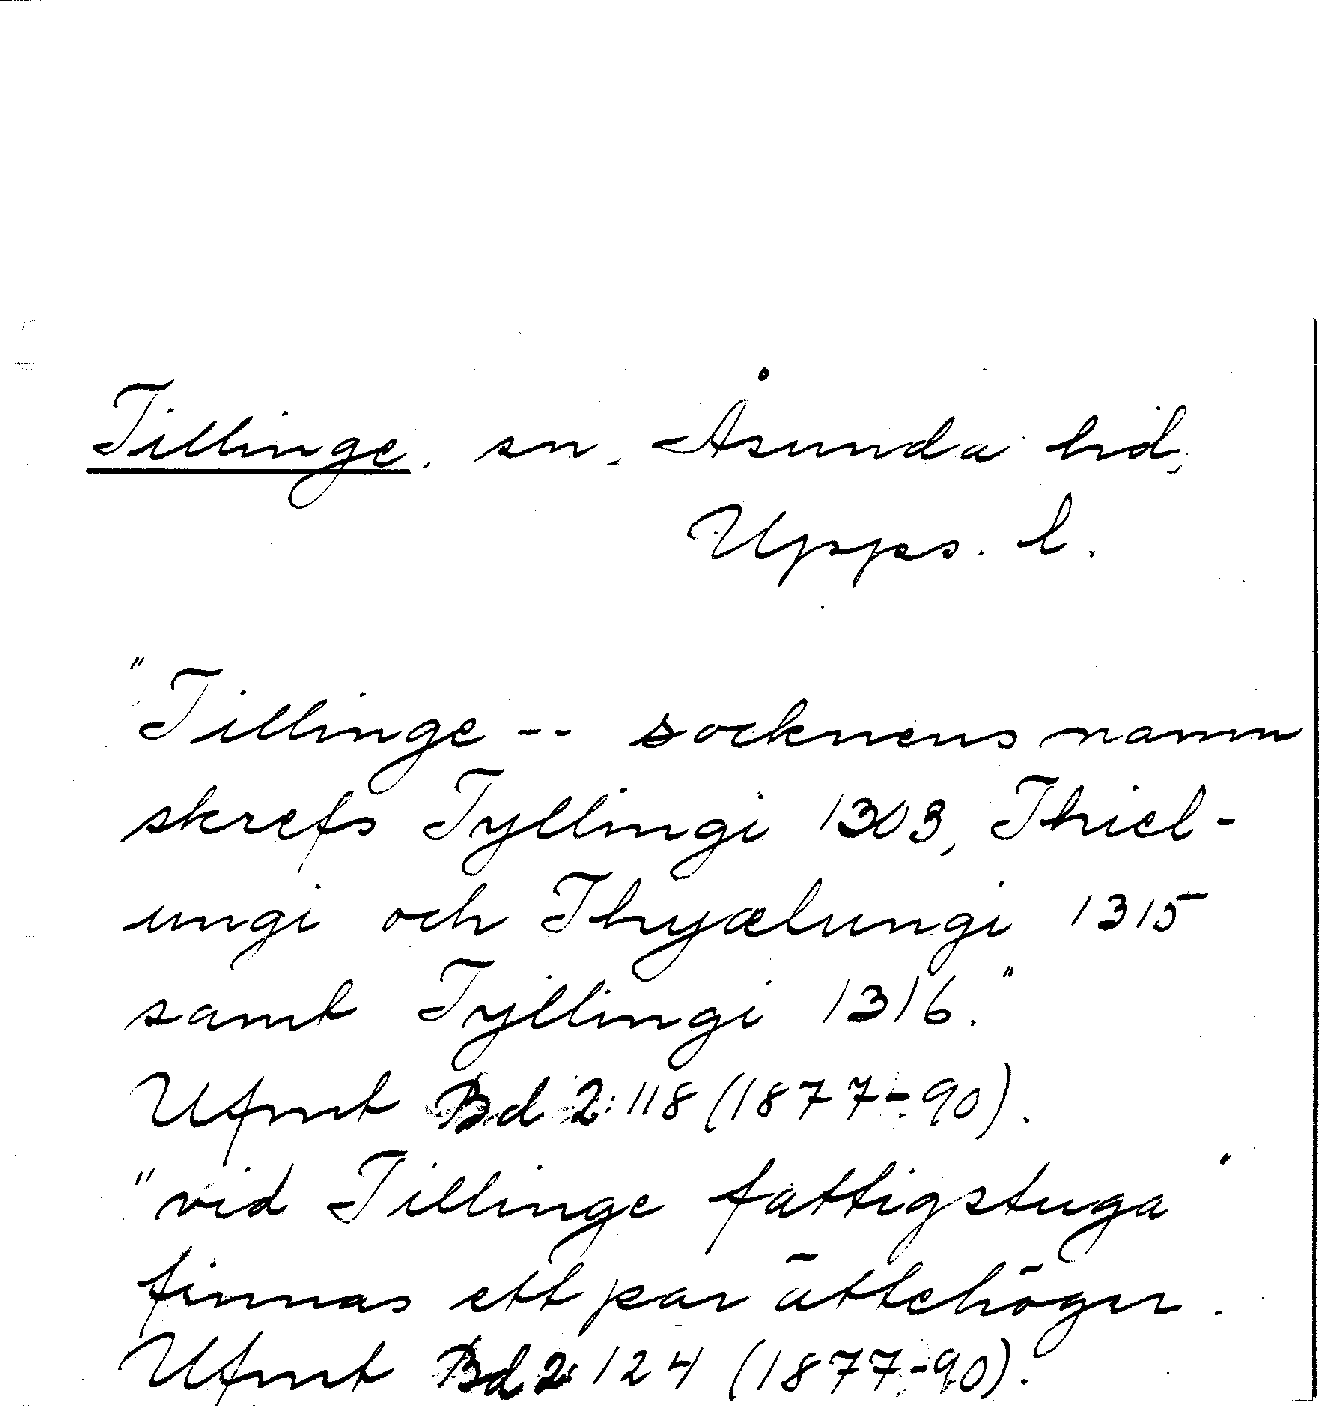 Tillinge. sn. Åsunda hd,
Upps. l.
"Tillinge -- socknens namn
skrefs Tyllingi 1303, Thiel-
ungi och Thyælungi 1315
samt Tyllingi 1316."
Ufmt Bd 2:118 (1877-90).
"vid Tillinge fattigstuga"
finnas ett par ättehögar.
Ufmt Bd 2:124 (1877-90).